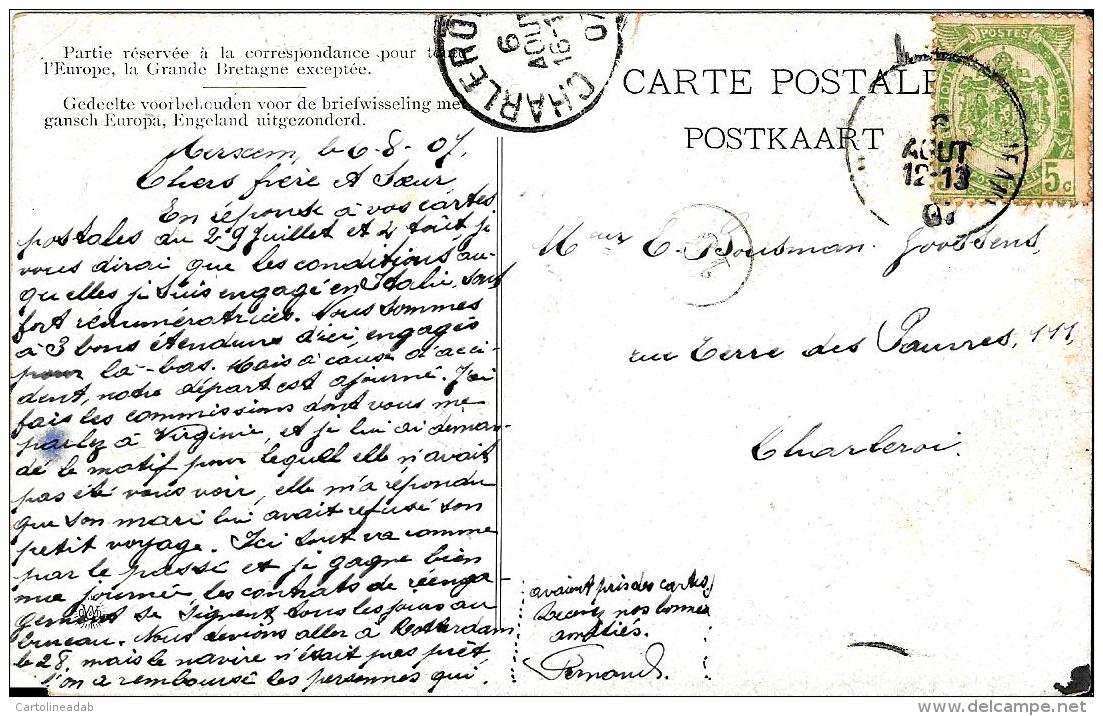 Partie réservée à la correspondance pour tou
l'Europe, la Grande Bretagne exceptée.
Gedeelte voorbehouden voor de briefwisseling me
gansch Europa, Engeland uitgezonderd.
CARTE POSTALE
POSTKAART
CHARLEROI
6
AOUT
16-1
07
POSTES
5c
6
AOUT
12-13
07
Merxem, le 6-8-07.
Chers frère et Sœur,
En réponse à vos cartes
postales du 29 Juillet et 4 Août, je
vous dirai que les conditions au-
quelles je suis engagé en Italie, sont
fort rémunératrices. Nous sommes
à 3 bons étendeurs d'ici, engagés
pour là-bas. Mais à cause d'acci-
dent, notre départ est ajourné. J'ai
fais les commissions dont vous me
parlez à Virginie, et je lui ai deman-
dé le motif pour lequel elle n'avait
pas été vous voir, elle m'a répondu
que son mari lui avait refusé son
petit voyage. Ici tout va comme
par le passé et je gagne bien
ma journée, les contrats de réenga-
gement se signent tous les jours au
bureau. Nous devions aller à Rotterdam
le 28. mais le navire n'était pas prêt
l'on a remboursé les personnes qui
avaient pris des cartes
Recevez nos bonnes
amitiés.
Fernand.
Mr E. Bousman-Goossens,
rue Terre des Pauvres, 111,
Charleroi.
© Cartolineadab
www.delcampe.net